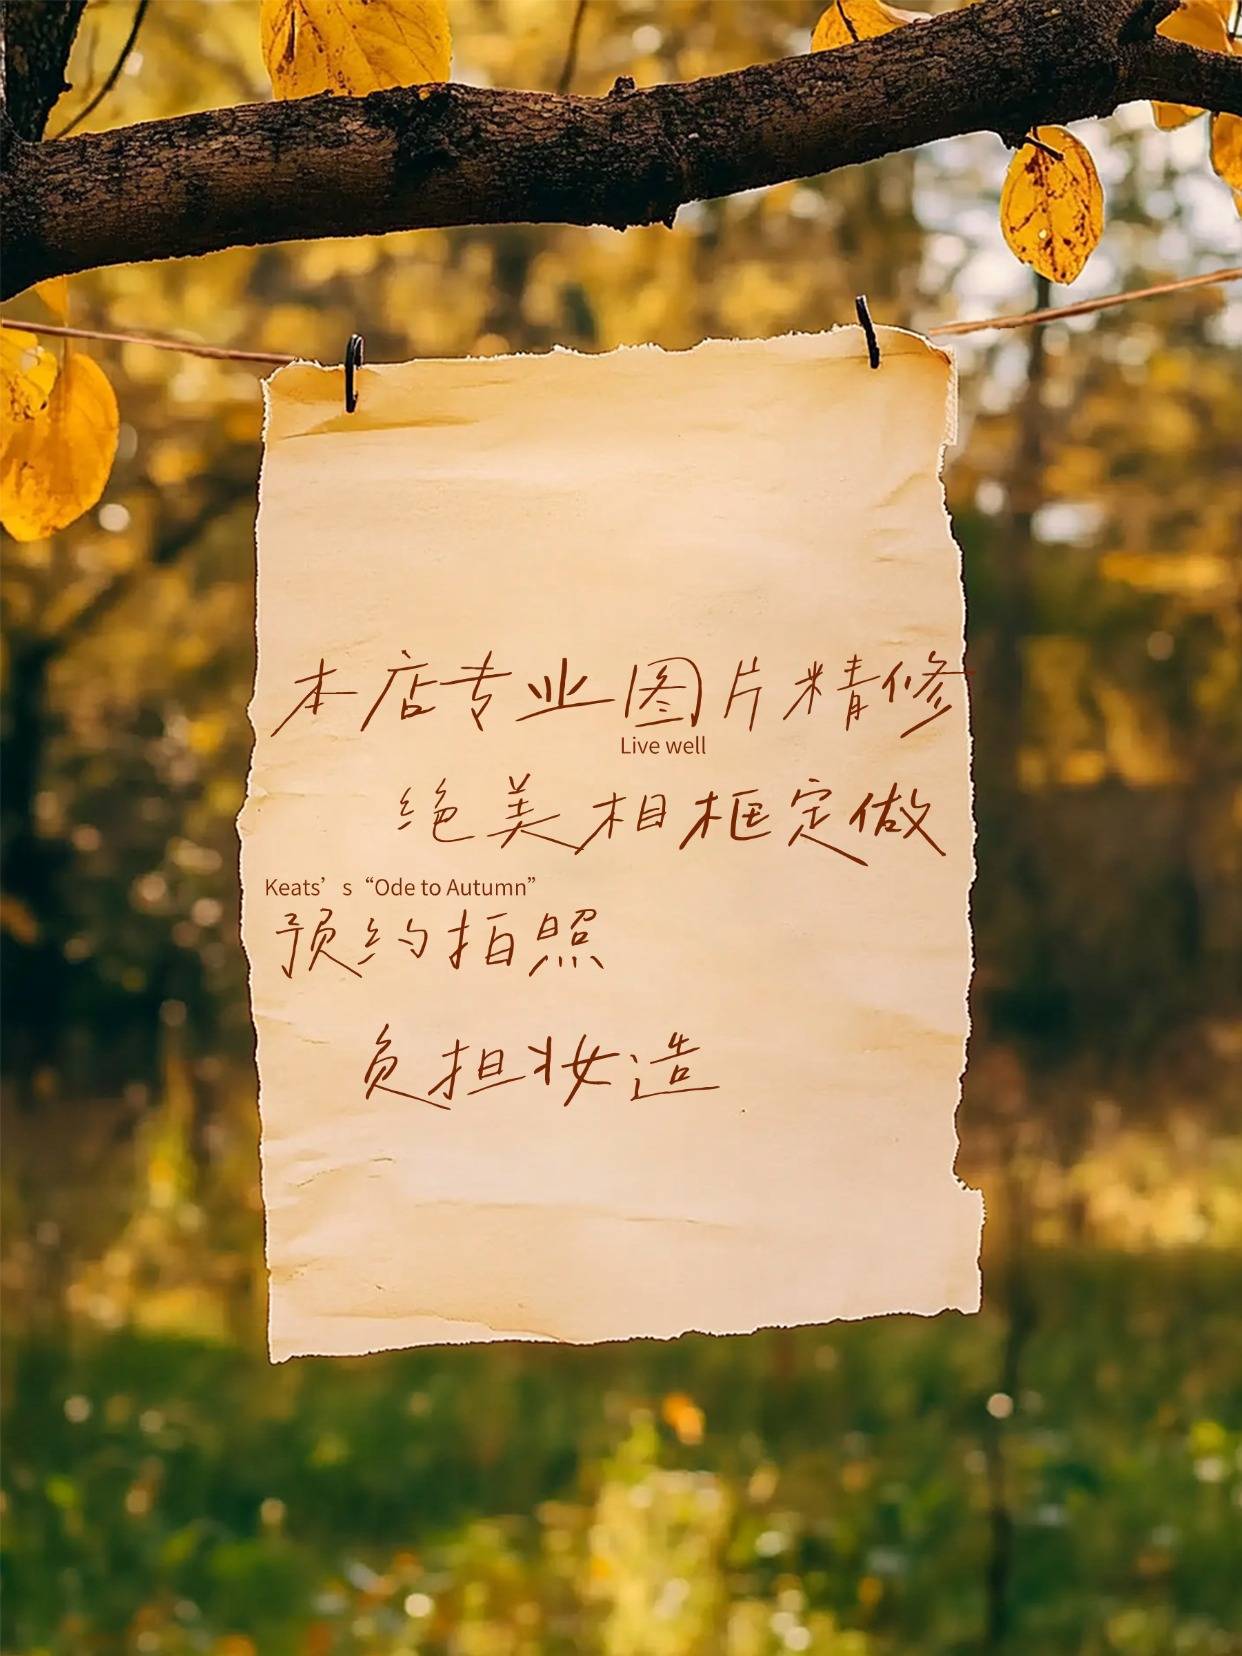 本店专业图片精修
Live well
绝美相框定做
Keats’s“Ode to Autumn”
预约拍照
负担妆造